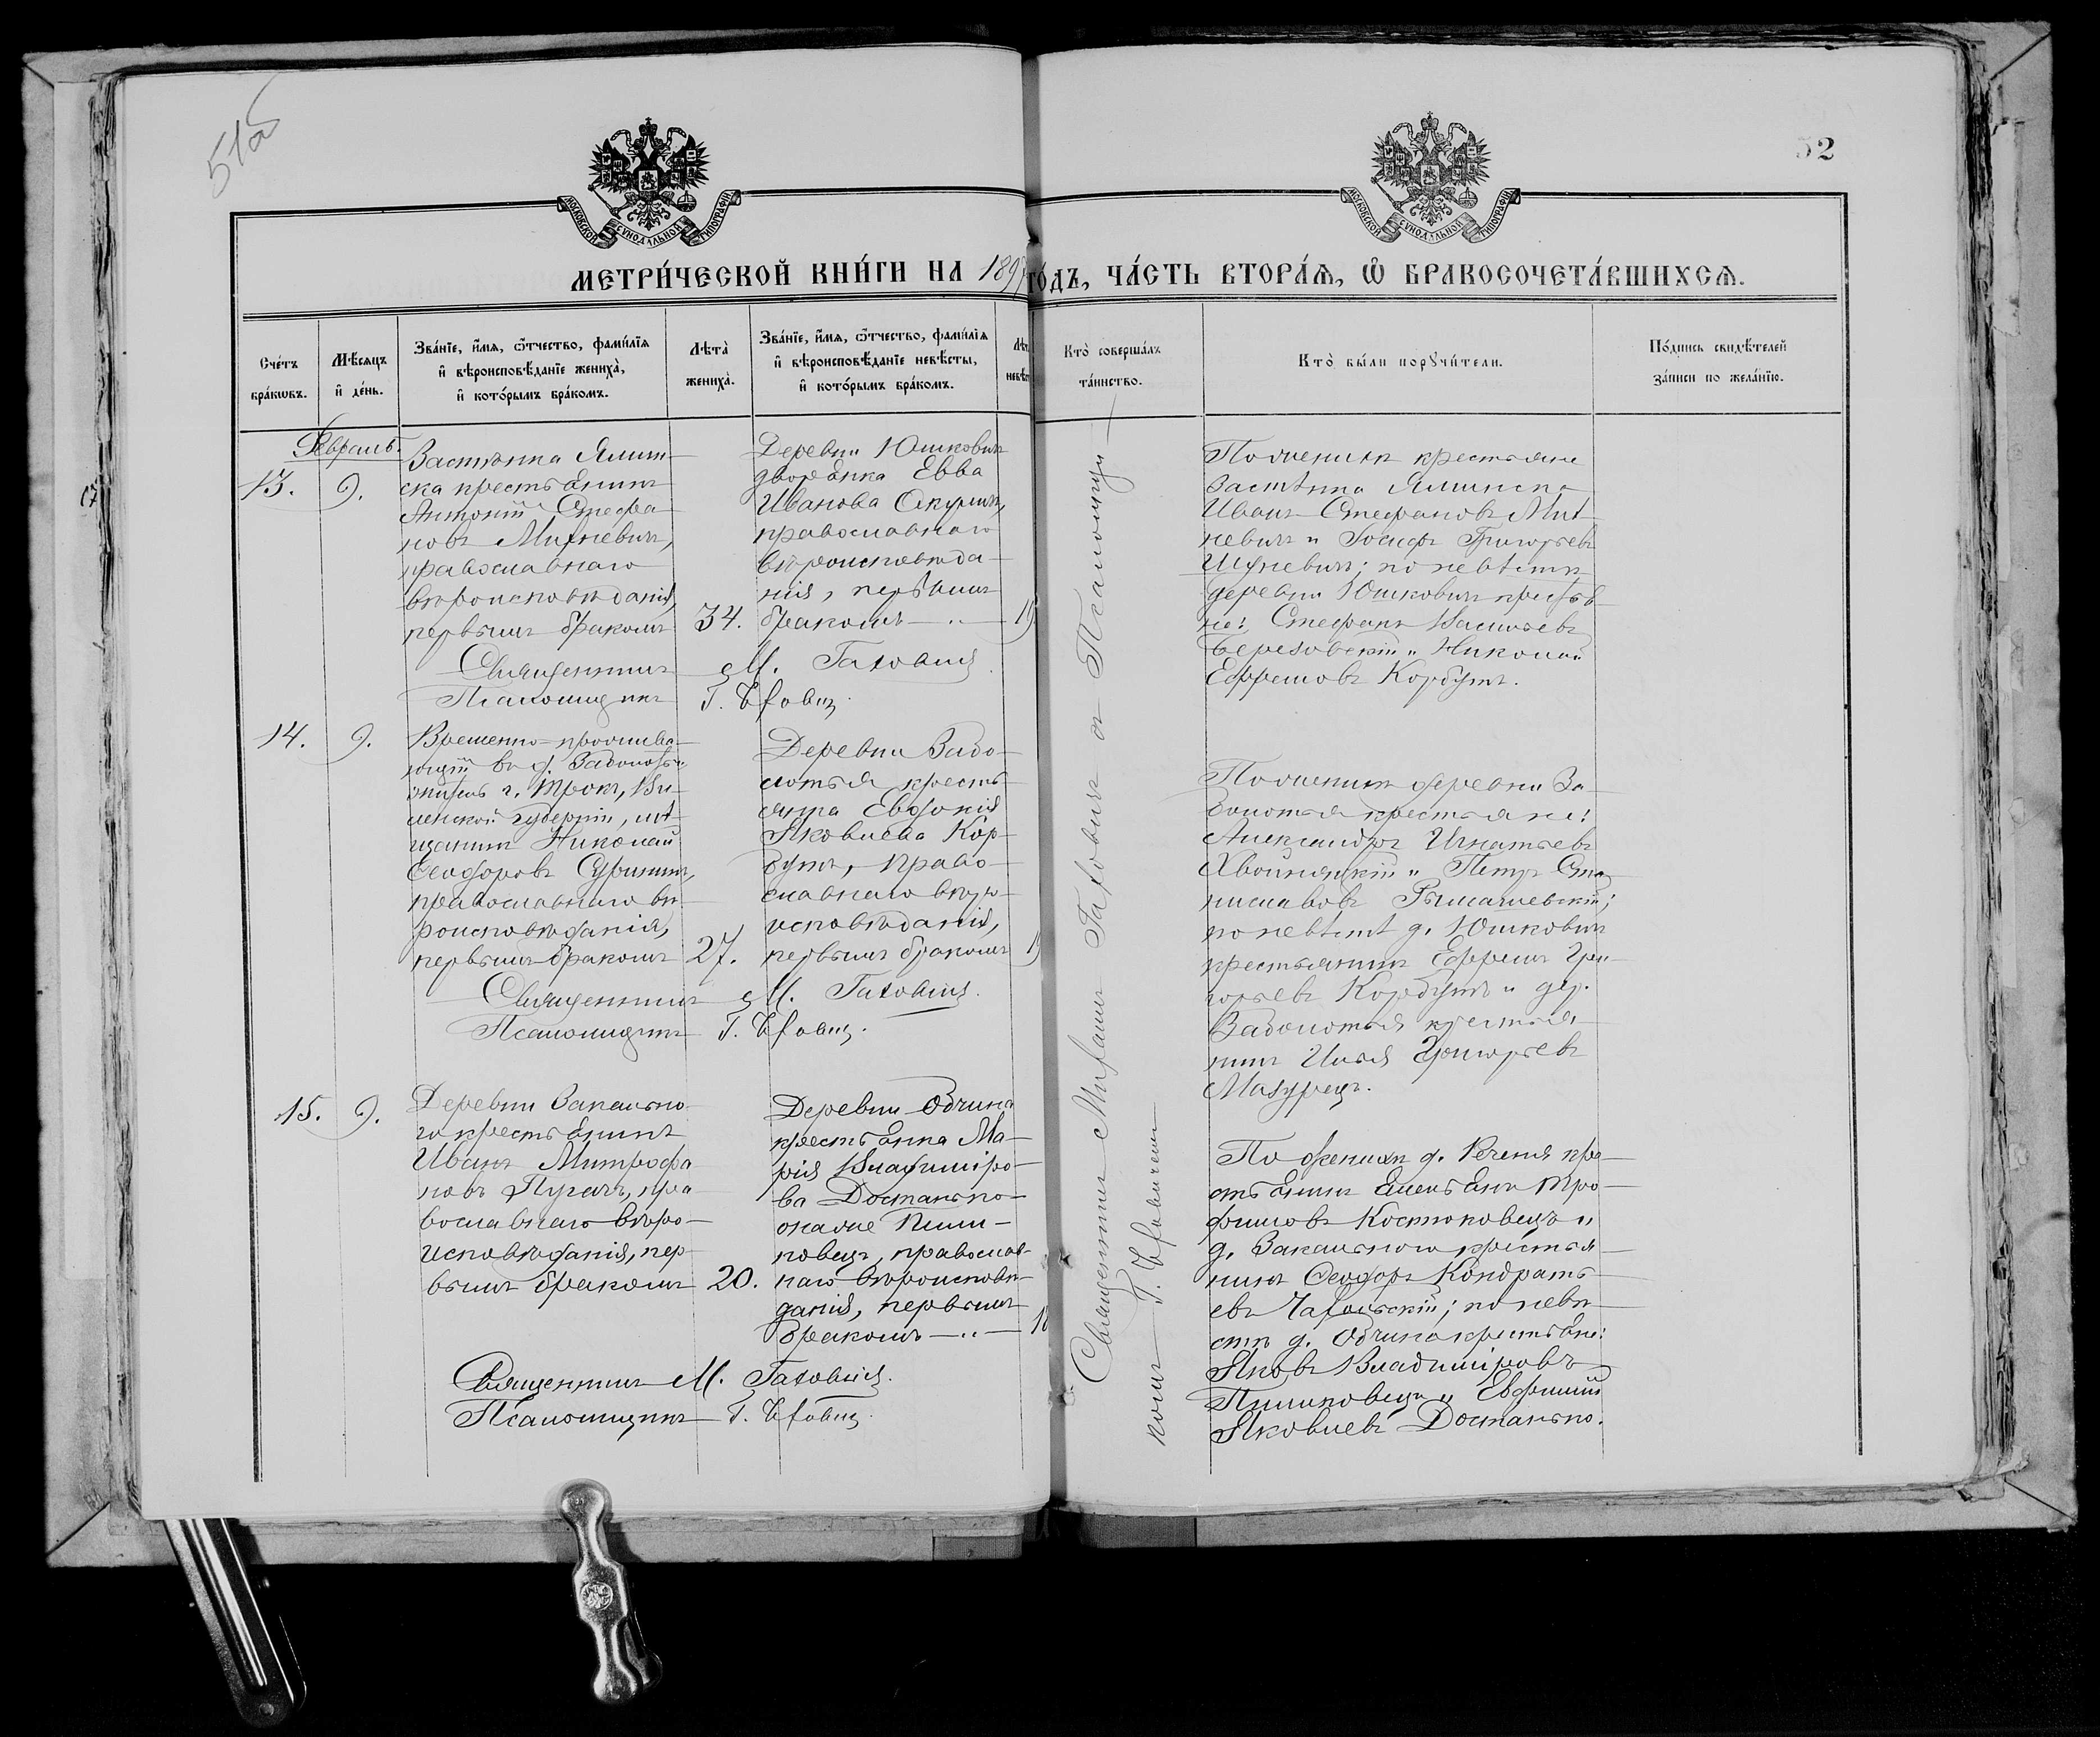 51об
52
МОСКОВСКОЙ СѴНОДАЛЬНОЙ ТИПОГРАФІИ
МОСКОВСКОЙ СѴНОДАЛЬНОЙ ТИПОГРАФІИ
МЕТРИ́ЧЕСКОЙ КНИ́ГИ НА 1897 ГО́ДЪ, ЧА́СТЬ ВТОРА́Ѧ, Ѽ БРАКОСОЧЕТА́ВШИХСѦ.
Сче́тъ
бра́кѡвъ.
Мѣ́сѧцъ
и҆ де́нь.
Зва́нїе, и҆́мѧ, ѻ҆́тчество, фами́лїѧ
и҆ вѣроисповѣ́данїе жениха̀,
и҆ кото́рымъ бра́комъ.
Лѣта̀
жениха̀.
Зва́нїе, и҆́мѧ, ѻ҆́тчество, фами́лїѧ
и҆ вѣроисповѣ́данїе невѣ́сты,
и҆ кото́рымъ бра́комъ.
Кто̀ соверша́лъ
та́инство.
Кто̀ бы́ли порꙋчи́тели.
По́дпись свидѣ́телей
за́писи по жела́нїю.
Февраль.
13.
9.
Застѣнка
ска крестьянинъ
Антоній Стефа
новъ Михневичъ,
православнаго
вѣроисповѣданія,
первымъ бракомъ
34.
Деревни Юшковичъ
дворянка Евва
Иванова
православнаго
вѣроисповѣда-
нія, первымъ
бракомъ — „ — 19
Священникъ М. Гаховичъ
Псаломщикъ Г.
По женихѣ крестьяне
застѣнка
Иванъ Стефановъ Мих
невичъ и Іосифъ Григорьевъ
по невѣстѣ
деревни Юшковичъ крестья
не: Стефанъ Васильевъ
Березовскій и Николай
Ефремовъ Корбутъ.
14.
9.
Временно-прожива-
ющій въ д. Заболотьи
житель г. Трокъ, Ви-
ленской губерніи, мѣ-
щанинъ Николай
Ѳеодоровъ
православнаго вѣ-
роисповѣданія,
первымъ бракомъ
27.
Деревни Забо-
лотья кресть-
янка Евдокія
Яковлева Кор-
бутъ, право-
славнаго вѣро-
исповѣданія,
первымъ бракомъ 19
Священникъ М. Гаховичъ.
Псаломщикъ Г.
По женихѣ деревни За-
болотья крестьяне:
Александръ Игнатьевъ
Хвойницкій и Петръ Ста
ниславовъ
по невѣстѣ д. Юшковичъ
крестьянинъ Ефремъ Гри-
горьевъ Корбутъ и дер.
Заболотья крестья-
нинъ Илья Григорьевъ
Мазурецъ.
15.
9.
Деревни Закально-
го крестьянинъ
Иванъ Митрофа
новъ Пугачъ, пра
вославнаго вѣро-
исповѣданія, пер-
вымъ бракомъ
20.
Деревни Обчина
крестьянка Ма-
рія Владиміро-
ва Достанько-
онаже Пиш-
ковецъ, православ-
наго вѣроисповѣ-
данія, первымъ
бракомъ — „ — 18
Священникъ М. Гаховичъ.
Псаломщикъ Г.
По женихѣ д. Реченя кре-
стьянинъ Емельянъ Тро-
фимовъ Костюковецъ и
д. Закальнаго крестья-
нинъ Ѳеодоръ Кондрать-
евъ по невѣ-
стѣ д. Обчина крестьяне:
Яковъ Владиміровъ
Пишковецъ и Евфимій
Яковлевъ Достанько.
Священникъ Михаилъ Гаховичъ съ Псаломщи-
комъ Г.